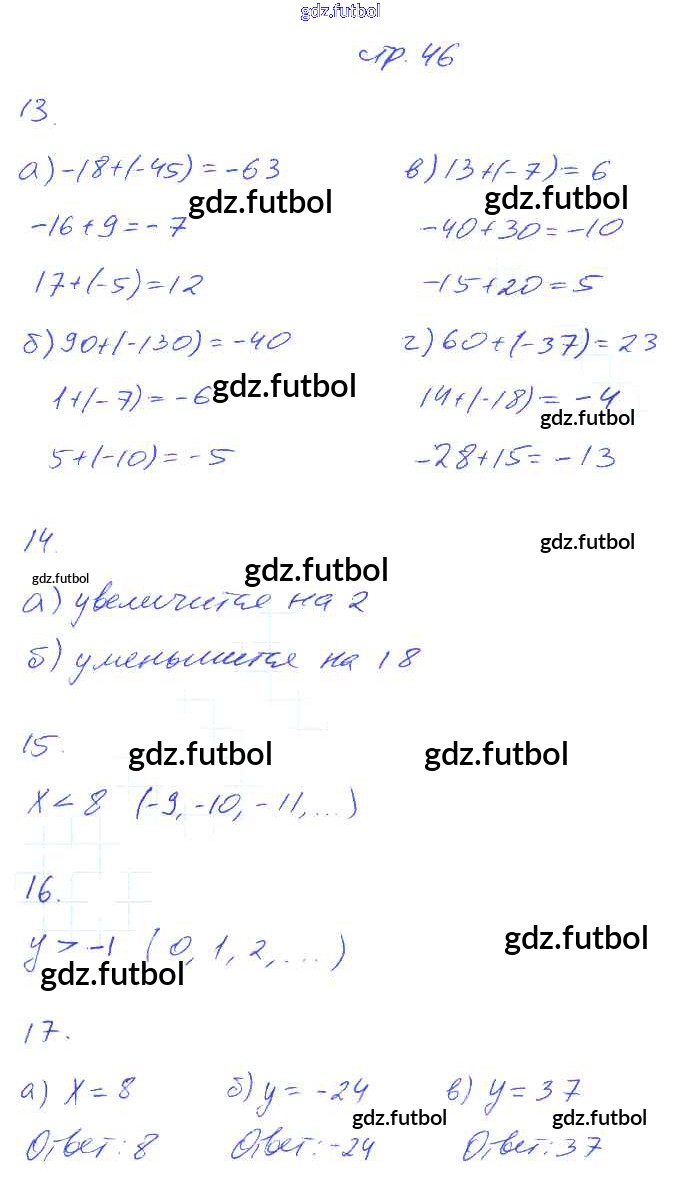 gdz.futbol
стр. 46
13.
а) -18+(-45) = -63 в) 13+(-7) = 6
gdz.futbol gdz.futbol
-16+9 = -7 -40+30 = -10
17+(-5) = 12 -15+20 = 5
б) 90+(-130) = -40 г) 60+(-37) = 23
1+(-7) = -6 14+(-18) = -4
gdz.futbol gdz.futbol
5+(-10) = -5 -28+15 = -13
14. gdz.futbol
gdz.futbol gdz.futbol
а) увеличится на 2
б) уменьшится на 18
15. gdz.futbol gdz.futbol
x < 8 (-9, -10, -11, ...)
16.
y > -1 (0, 1, 2, ...) gdz.futbol
gdz.futbol
17.
а) x = 8 б) y = -24 в) y = 37
gdz.futbol gdz.futbol
Ответ: 8 Ответ: -24 Ответ: 37